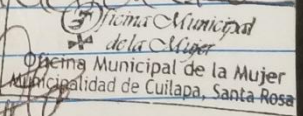 Oficina Municipal
de la Mujer
Oficina Municipal de la Mujer
Municipalidad de Cuilapa, Santa Rosa